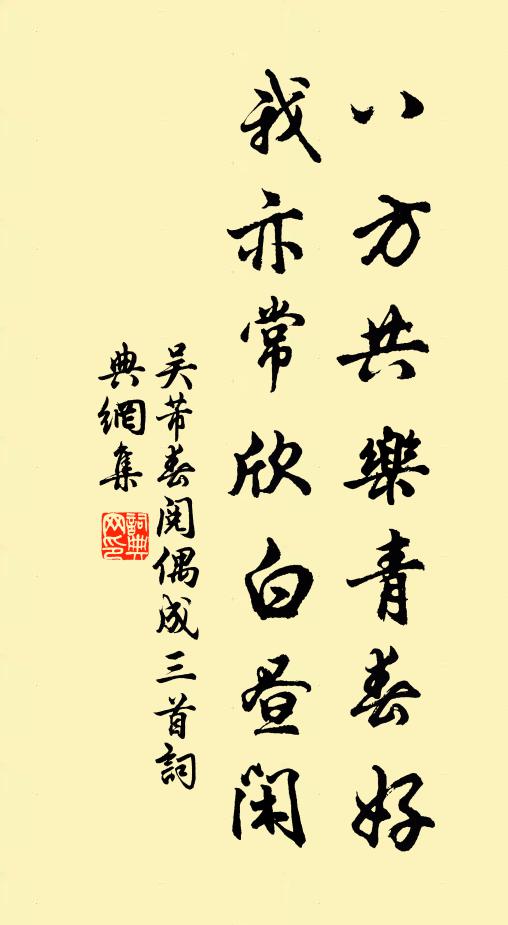 八方共樂青春好
我亦常欣白晝閑
吳芾春閱偶成三首詞
典網集
詞典網印